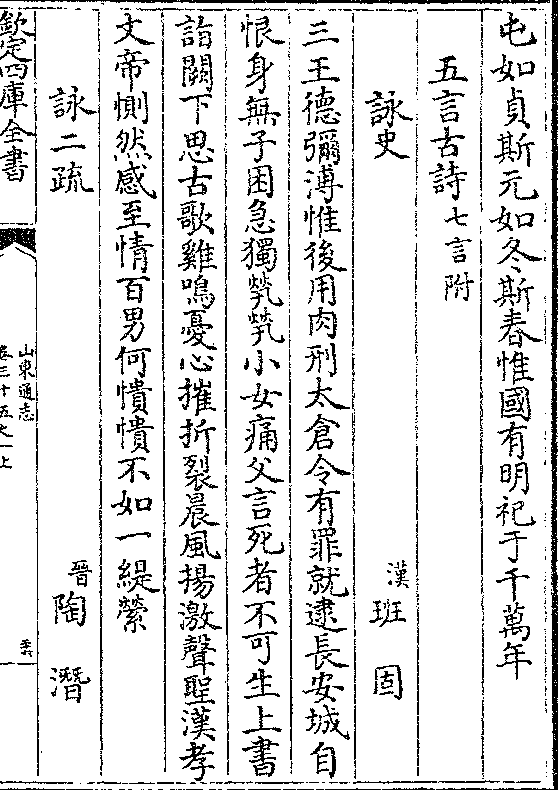 屯如貞斯元如冬斯春惟國有明祀于千萬年
五言古詩七言附
詠史 漢 班固
三王德彌溥惟後用肉刑太倉令有罪就逮長安城自
恨身無子困急獨煢煢小女痛父言死者不可生上書
詣闕下思古歌雞鳴憂心摧折裂晨風揚激聲聖漢孝
文帝惻然感至情百男何憒憒不如一緹縈
詠二疏 晉 陶潛
欽定四庫全書
山東通志
卷三十五之一上